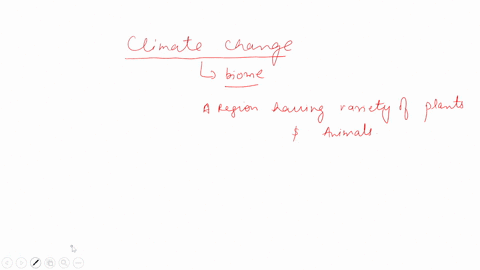 Climate change
↳ biome
A Region having variety of plants
$ Animals